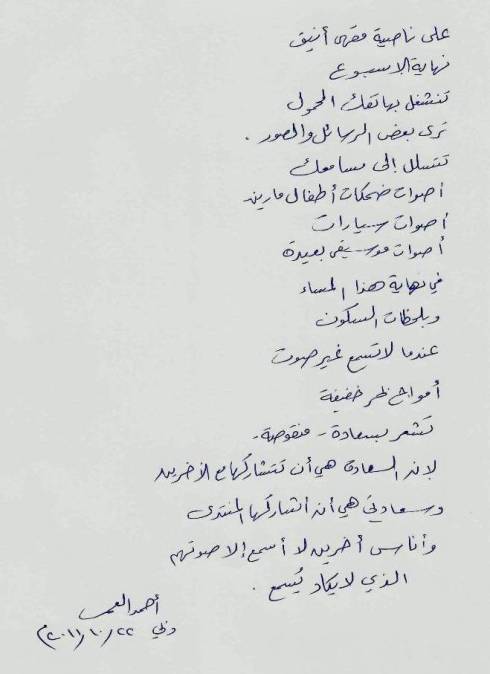 على ناصية مقهى أنيق
نهاية الاسبوع
تنشغل بهاتفك المحمول
ترى بعض الرسائل والصور .
تتسلل إلى مسامعك
أصوات ضحكات أطفال مارين
أصوات سيارات
أصوات موسيقى بعيدة
في نهاية هذا المساء
وبلحظات السكون
عندما لا تسمع غير صوت
أمواج خفيفة
تشعر بسعادة - منقوصة -
لان السعادة هي أن تتشاركها مع الآخرين
وسعادتي هي أن أشاركها المنتدى
وأناس آخرين لا أسمع إلا صوتهم
الذي لا يكاد يُسمع .
أحمد
دبي ٢٢/١٠/٢٠١١م